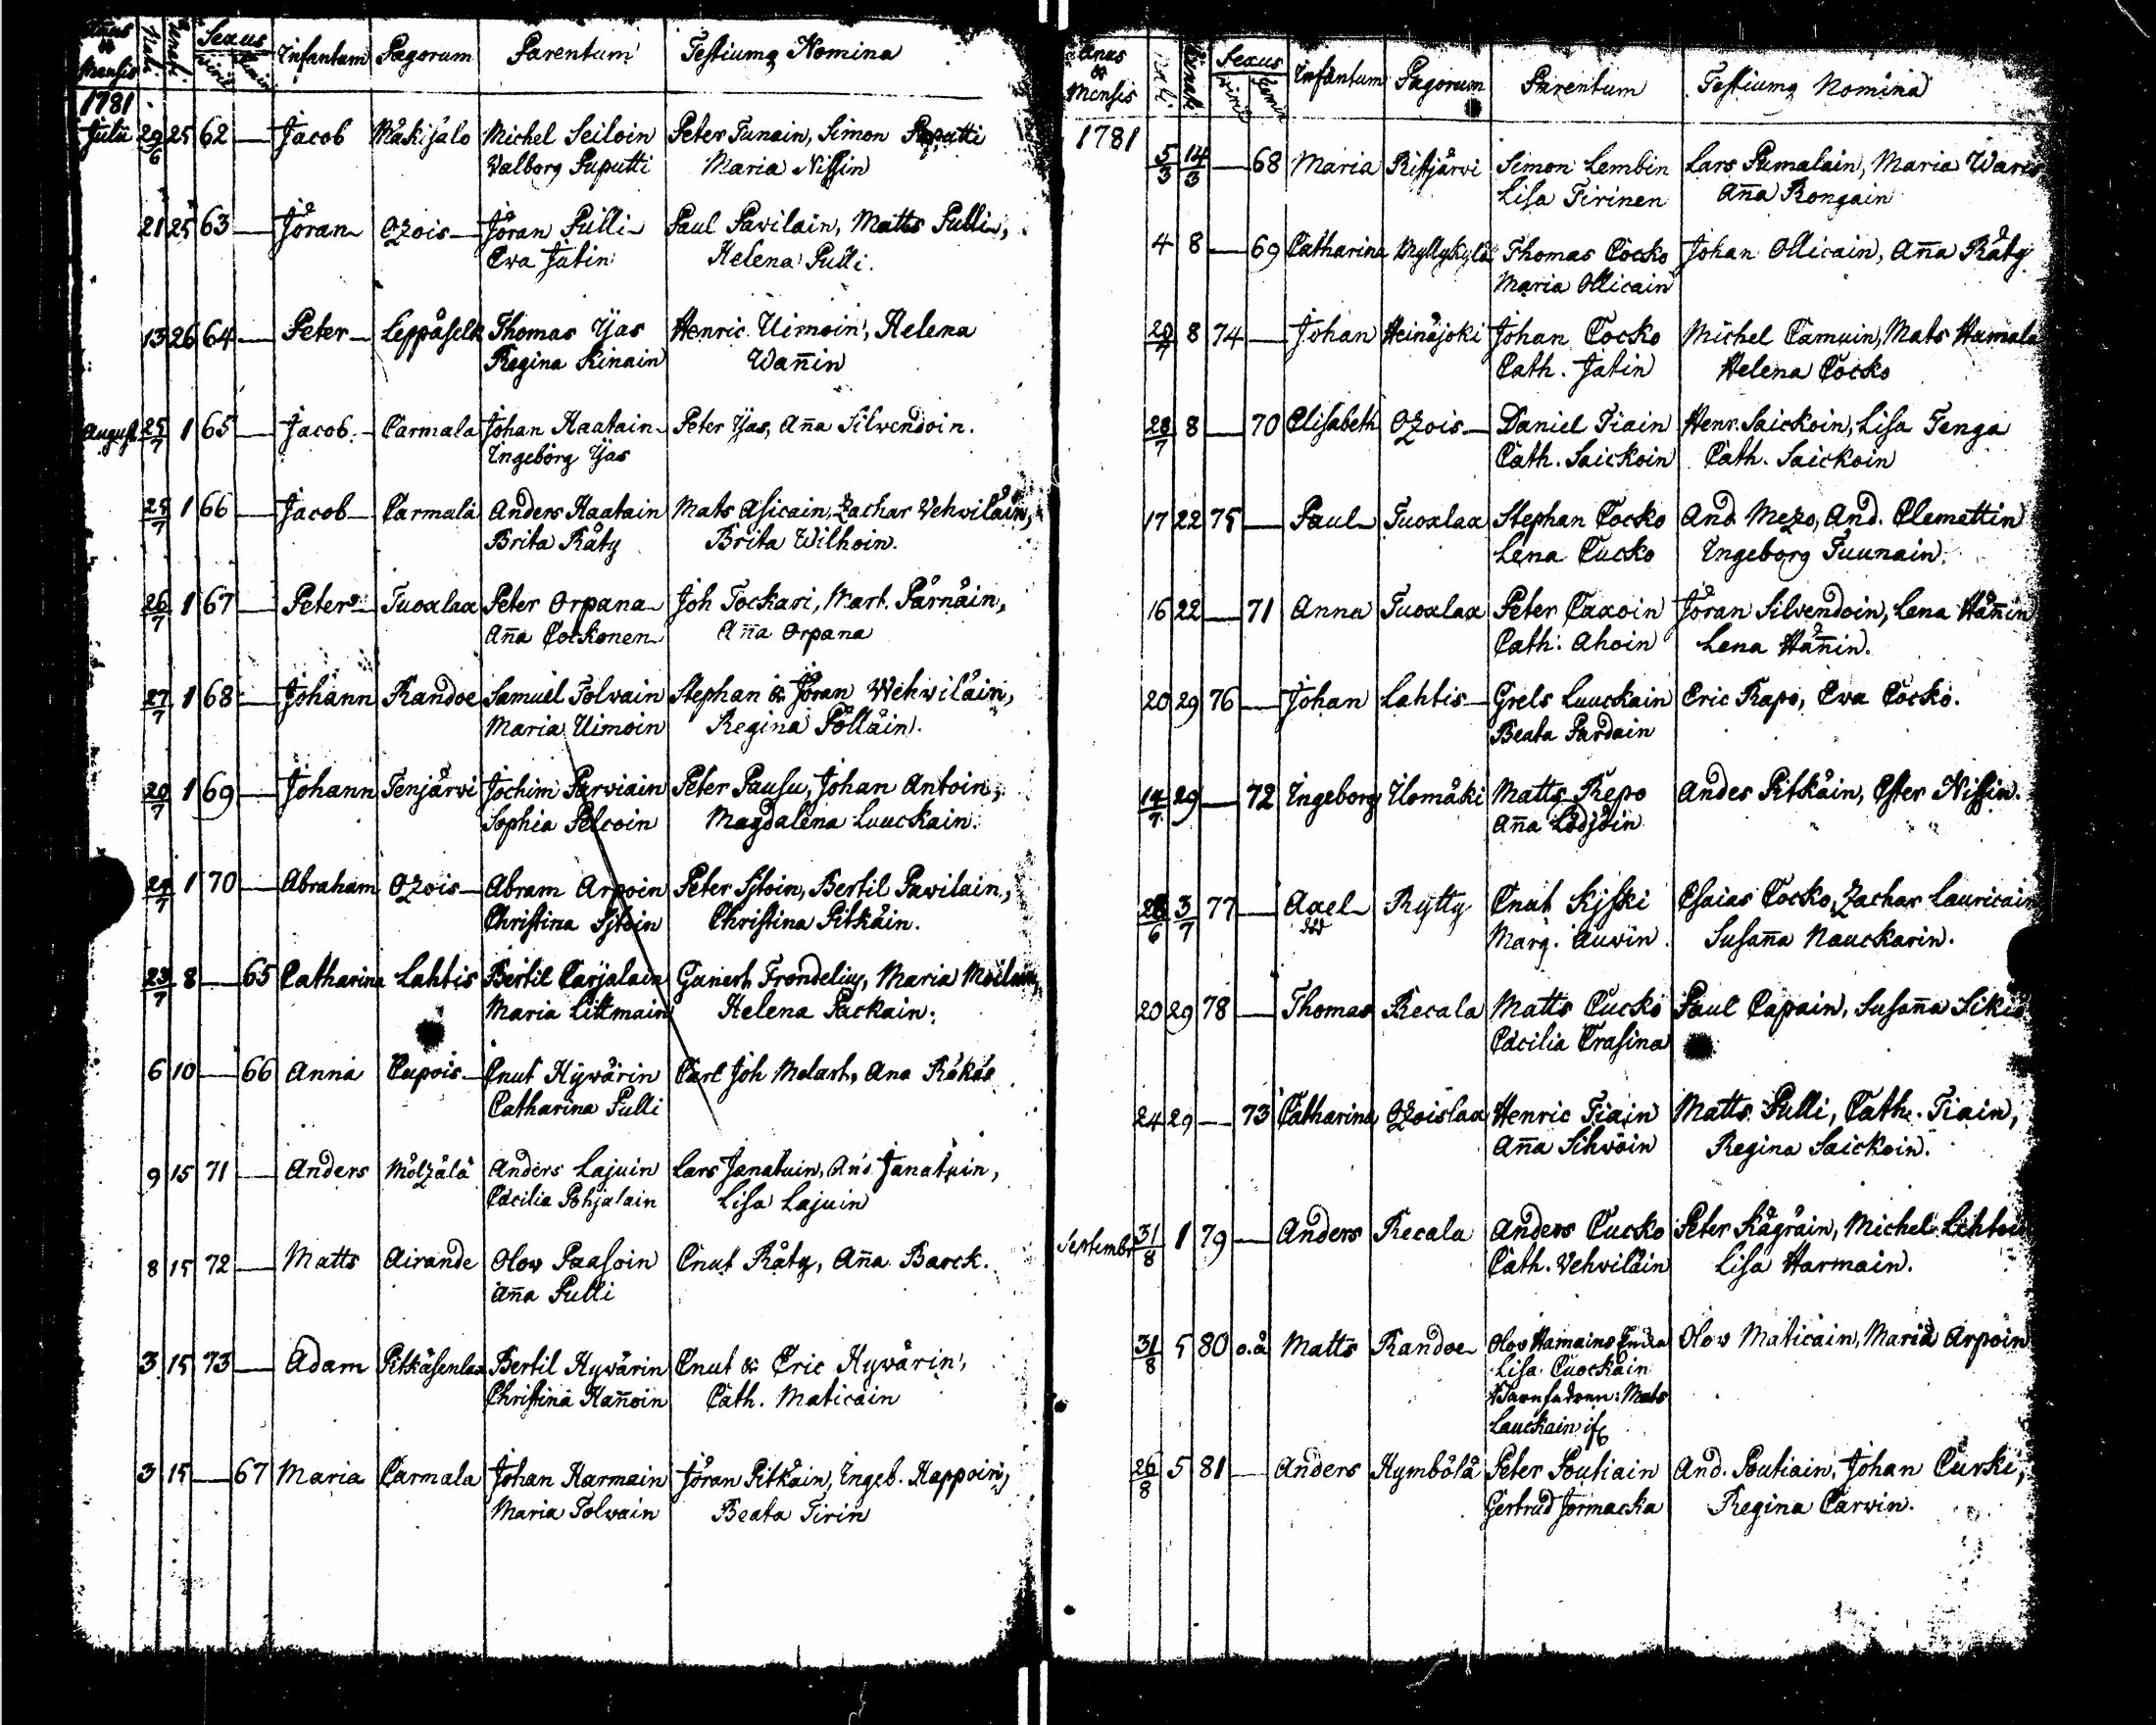 Annus & Mensis Nati Renati Sexus Virile Femin Infantum Pagorum Parentum Testiumq Nomina
1781
Julii 29/6 25 62 — Jacob Mäkijalo Michel Seiloin Peter Tunain, Simon Paputti
Valborg Puputti Maria Nissin
21 25 63 — Jöran Ozois Jöran Pulli Paul Pavilain, Matts Pulli,
Eva Jätin Helena Pulli.
13 26 64 — Peter Leppäselk Thomas Yjas Henric Uimoin, Helena
Regina Kinain Wañin
August 25/7 1 65 — Jacob Carmala Johan Haatain Peter Yjas, Aña Silvendoin.
Ingeborg Yjas
28/7 1 66 — Jacob Carmala Anders Haatain Mats Asicain, Zachar Vehviläin,
Brita Räty Brita Wilhoin.
26/7 1 67 — Peter Tuoxlax Peter Orpana Joh Tockari, Mart. Pärnäin,
Aña Cockonen Aña Orpana
27/7 1 68 — Johann Randoe Samuel Tolvain Stephan & Jöran Wehviläin,
Maria Uimoin Regina Pölläin.
20/7 1 69 — Johann Tenjärvi Jochim Parviain Peter Pausu, Johan Antoin,
Sophia Pelcoin Magdalena Luuckain.
24/7 1 70 — Abraham Ozois Abram Arpoin Peter Sjtoin, Bertil Pavilain,
Christina Sjtoin Christina Pitkäin.
23/7 8 — 65 Catharina Lahtis Bertil Carjalain Ganert Frondelius, Maria
Maria Littmain Helena Packain.
6 10 — 66 Anna Cupois Cnut Hyvärin Carl Joh Melart, Ana Räkäs
Catharina Pulli
9 15 71 — Anders Mölzälä Anders Lajuin Lars Janatuin, And Janatuin,
Cäcilia Pohjalain Lisa Lajuin
8 15 72 — Matts Airande Olov Paasoin Cnut Räty, Aña Barck.
Aña Pulli
3 15 73 — Adam Pitkäsenlax Bertil Hyvärin Cnut & Eric Hyvärin,
Christina Hañoin Cath. Maticain
3 15 — 67 Maria Carmala Johan Harmain Jöran Pitkäin, Ingeb. Happoin,
Maria Tolvain Beata Tirin
Anus & Mensis Nati Renati Sexus Virile Femin Infantum Pagorum Parentum Testiumq Nomina
1781
5/3 14/3 — 68 Maria Ristjärvi Simon Lembin Lars Pumalain, Maria Wares
Lisa Tirinen Aña Rongain
4 8 — 69 Catharina Myllykylä Thomas Cocko Johan Ollicain, Aña Räty
Maria Ollicain
29/7 8 74 — Johan Heinäjoki Johan Cocko Michel Camuin, Mats Hamala
Cath. Jatin Helena Cocko
28/7 8 — 70 Elisabeth Ozois Daniel Tiain Henr. Saickoin, Lisa Tenga
Cath. Saickoin Cath. Saickoin
17 22 75 — Paul Tuoxlax Stephan Cocko And Mezo, And. Clemettin
Lena Cucko Ingeborg Tuunain.
16 22 — 71 Anna Tuoxlax Peter Caxoin Jöran Silvendoin, Lena Häñin
Cath: Ahoin Lena Häñin.
20 29 76 — Johan Lahtis Grels Luuckain Eric Rapo, Eva Cocko.
Beata Pardain
14/7 29 — 72 Ingeborg Ilomäki Matts Repo Andes Pitkäin, Ester Nissin.
Aña Lödjöin
28/6 3/7 77 — Axel Rytty Cnut Kiski Esaias Cocko, Zachar Lauricain
Marg. Auvin. Susaña Nauckarin.
20 29 78 — Thomas Recala Matts Cucko Paul Capain, Susaña
Cäcilia Crasina
24 29 — 73 Catharina Ozoislax Henric Tiain Matts Pulli, Cath. Tiain,
Aña Sihvoin Regina Saickoin.
Septembr 31/8 1 79 — Anders Recala Anders Cucko Peter Kägräin, Michel Lehtoi
Cath. Vehviläin Lisa Harmain.
31/8 5 80 o.ä Matts Randoe Olov Hamains Enka Olov Maticain, Maria Arpoin
Lisa Cuockain
Barnfadren: Mats
Lauckain
26/8 5 81 — Anders Hymbölä Peter Poutiain And. Poutiain, Johan Curki,
Gertrud Jormacka Regina Carvin.